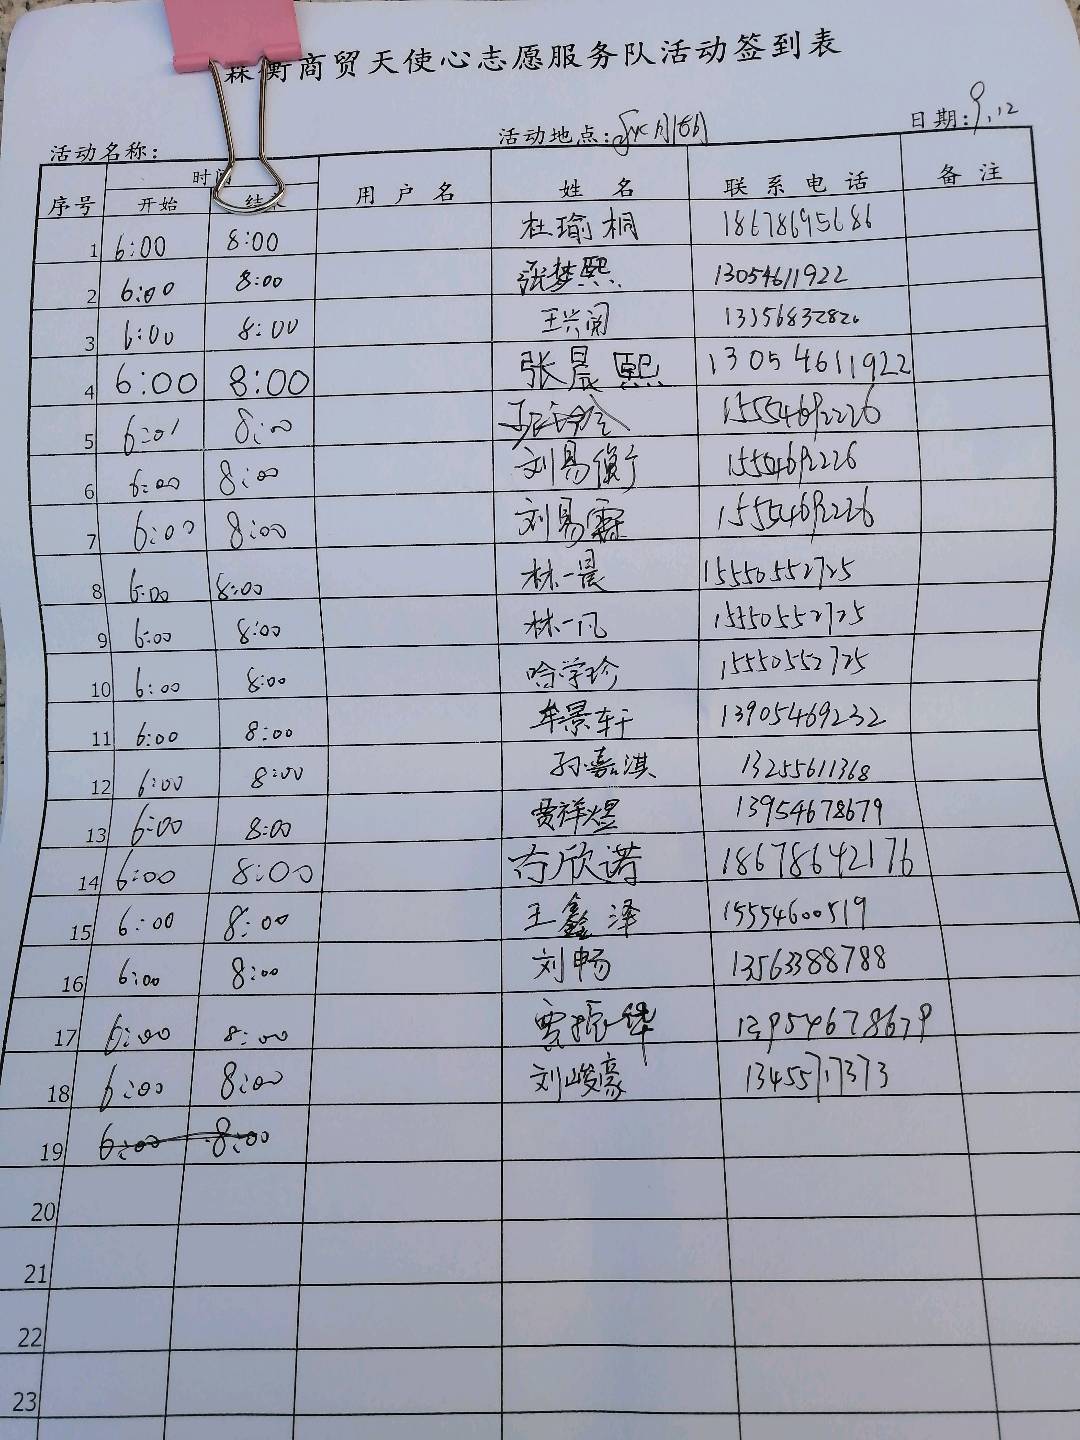 森衡商贸天使心志愿服务队活动签到表
活动名称： 活动地点： 日期：9.12
序号 时间 用户名 姓名 联系电话 备注
开始 结束
1 6:00 8:00 杜瑜桐 18678695686
2 6:00 8:00 张梦熙 13054611922
3 6:00 8:00 王兴阅 13356832826
4 6:00 8:00 张晨熙 13054611922
5 6:01 8:00 15554692226
6 6:00 8:00 刘易衡 15554692226
7 6:00 8:00 刘易霖 15554692226
8 6:00 8:00 林一晨 15550552725
9 6:00 8:00 林一凡 15550552725
10 6:00 8:00 哈学珍 15550552725
11 6:00 8:00 牟景轩 13905469232
12 6:00 8:00 孙嘉淇 13255611368
13 6:00 8:00 贾祥煜 13954678679
14 6:00 8:00 欣诺 18678642176
15 6:00 8:00 王鑫泽 15554600519
16 6:00 8:00 刘畅 13563388788
17 6:00 8:00 贾振华 13954678679
18 6:00 8:00 刘峻豪 13455717373
19 6:00 8:00
20
21
22
23